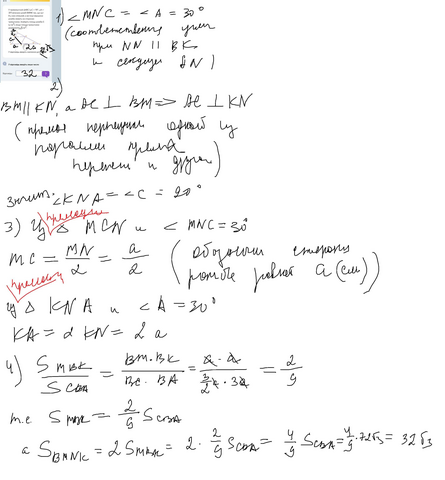 1) ∠MNC = ∠A = 30°
(соответственные углы
при NN || BK
и секущей AN)
2)
BM || KN, а AC ⊥ BM => AC ⊥ KN
(прямая перпендик одной из
параллел прямых
перпен и другой)
значит ∠KNA = ∠C = 90°
прямоуг
3) Из △ MCN и ∠MNC = 30°
MC = MN/2 = a/2 (обозначим сторону
ромба равной a (см))
прямоуг
Из △ KNA и ∠A = 30°
KA = 2 KN = 2a
4) S MBK / S CBA = BM·BK / BC·BA = a·a / 3/2 a·3a = 2/9
т.е S MBK = 2/9 S CBA
а S BMNK = 2 S MBK = 2 · 2/9 S CBA = 4/9 S CBA = 4/9 · 72√3 = 32√3
32